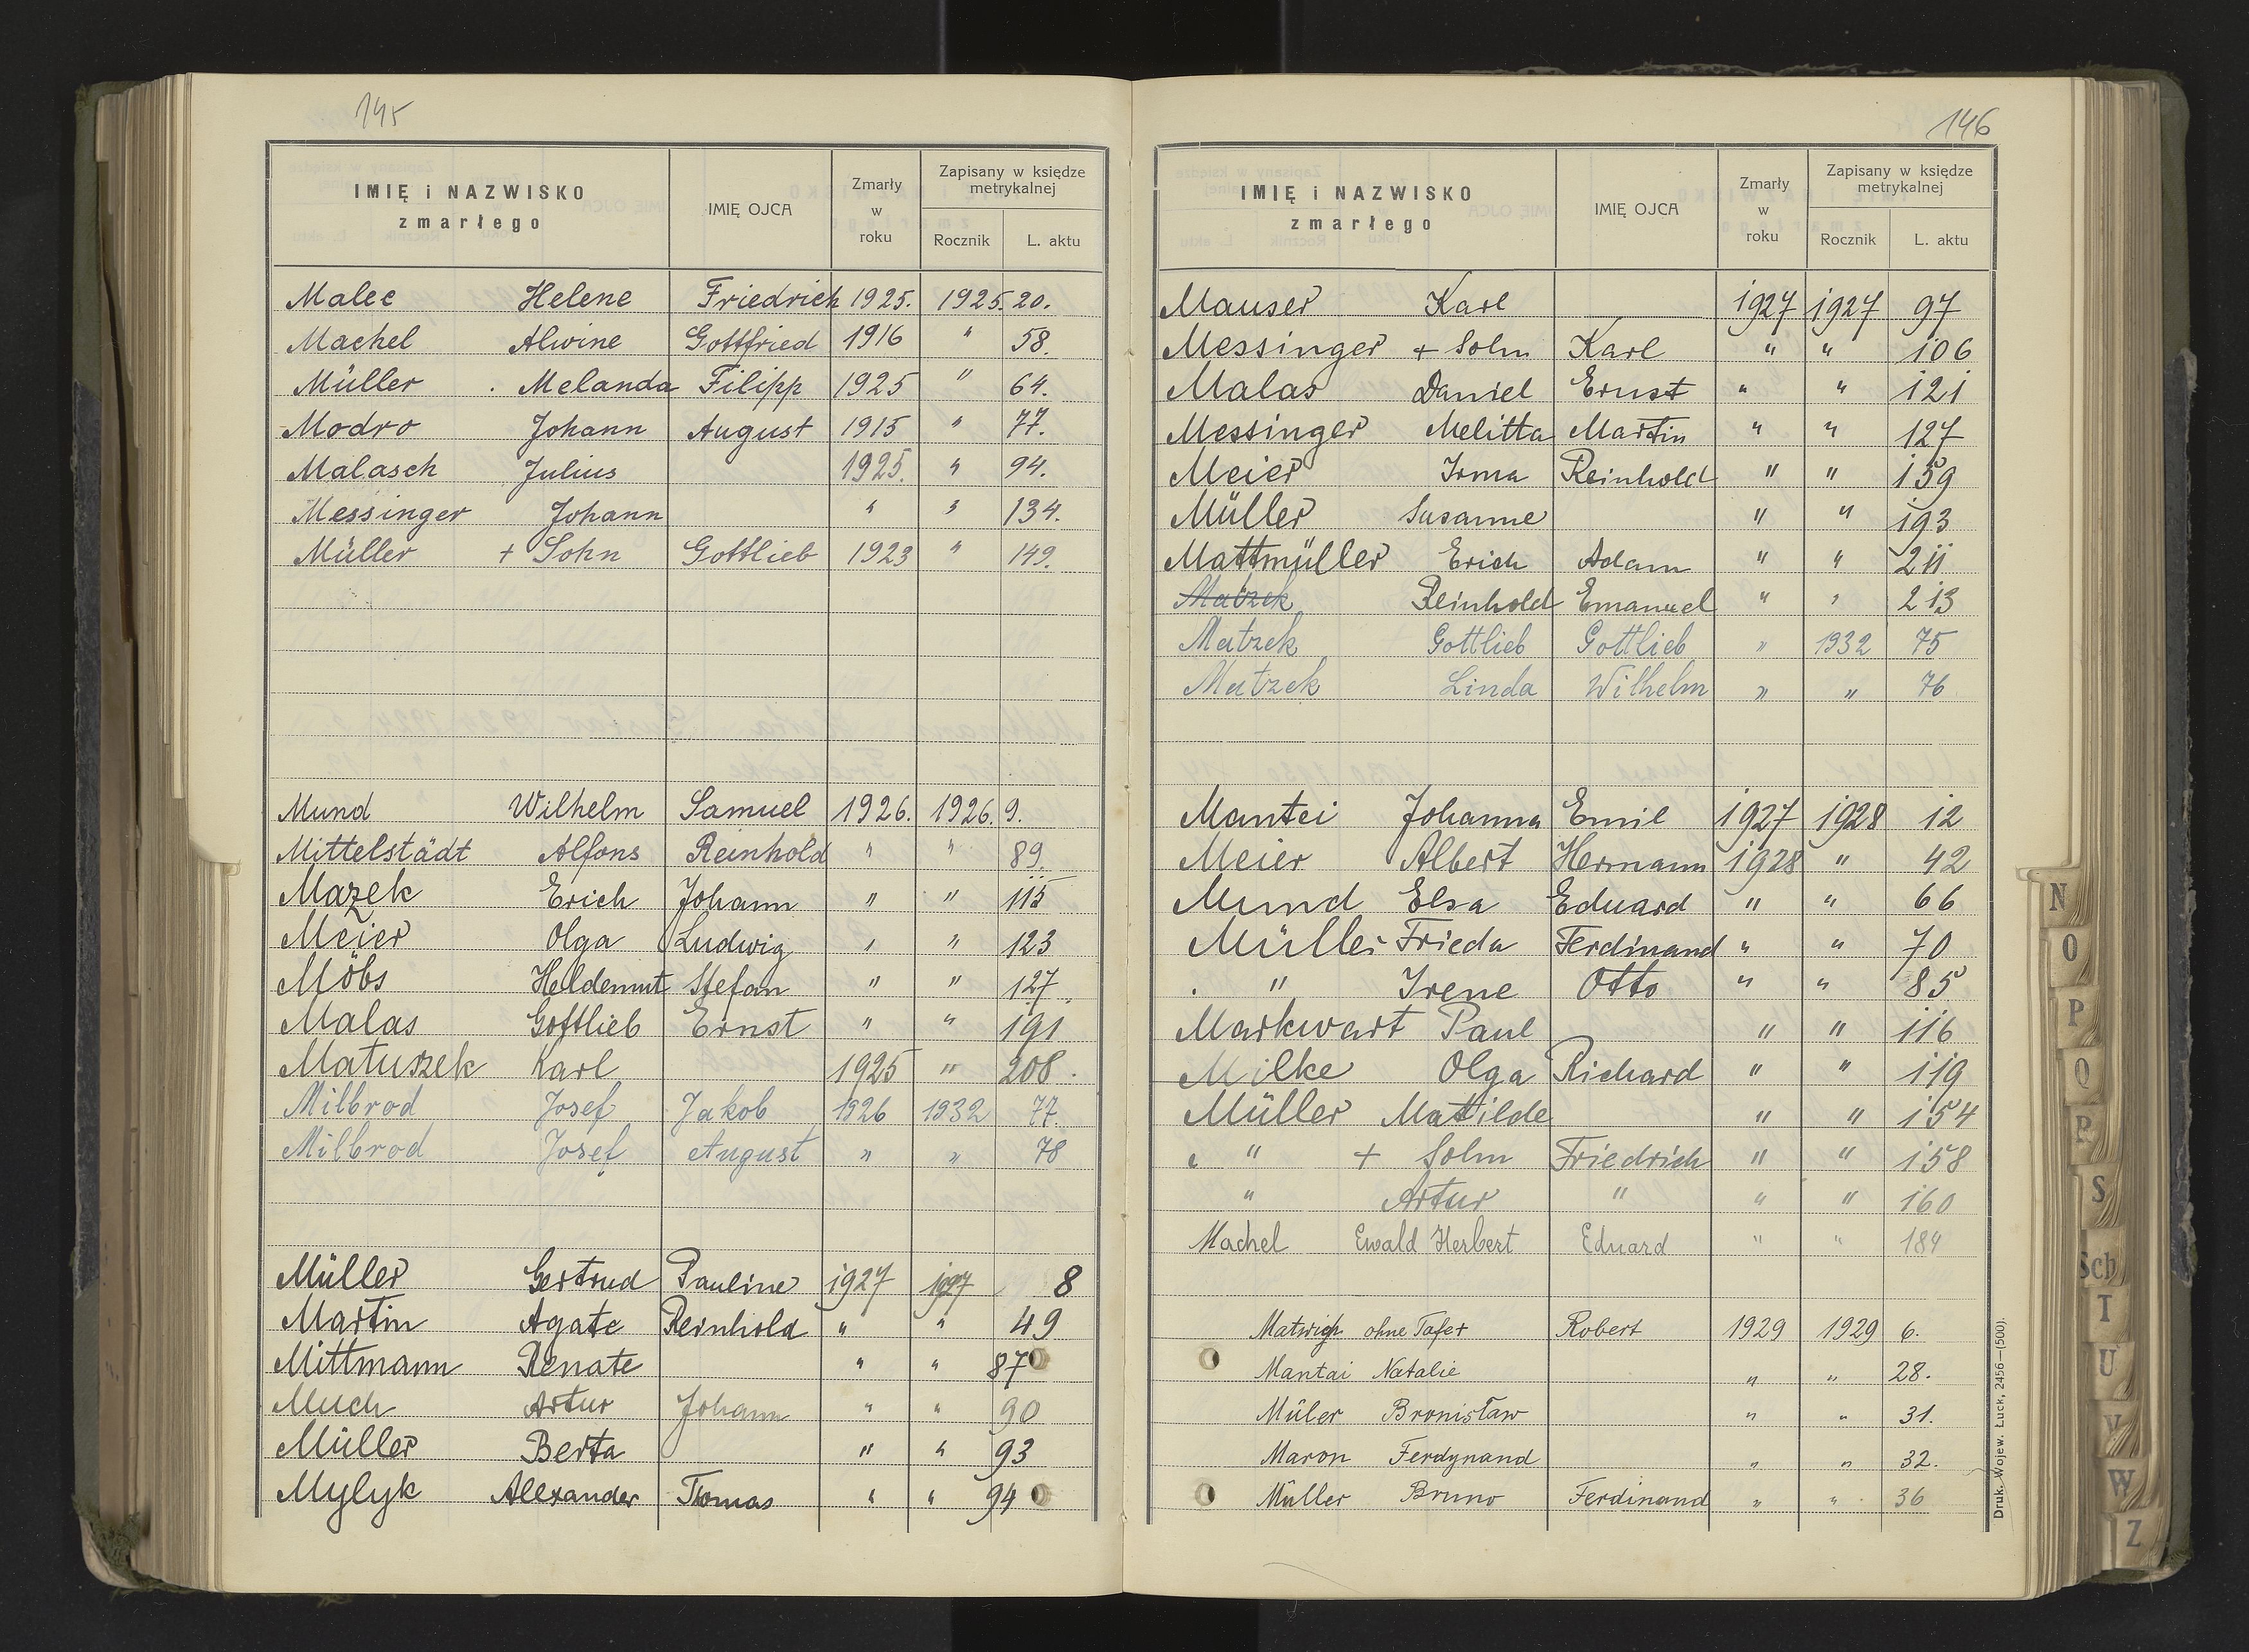 145
IMIĘ i NAZWISKO zmarłego IMIĘ OJCA Zmarły w roku Zapisany w księdze metrykalnej Rocznik L. aktu
Malec Helene Friedrich 1925. 1925. 20.
Machel Alwine Gottfried 1916 " 58.
Müller Melanda Filipp 1925 " 64.
Modro Johann August 1915 " 77.
Malasch Julius 1925. " 94.
Messinger Johann " " 134.
Müller + Sohn Gottlieb 1923 " 149.
Mund Wilhelm Samuel 1926. 1926. 9.
Mittelstädt Alfons Reinhold " " 89.
Mazek Erich Johann " " 115
Meier Olga Ludwig " " 123
Möbs Heldemut Stefan " " 127
Malas Gottlieb Ernst " " 191
Matuszek Karl 1925 " 208.
Milbrod Josef Jakob 1926 1932 77.
Milbrod Josef August " " 78
Müller Gertrud Pauline 1927 1927 8
Martin Agate Reinhold " " 49
Mittmann Renate " " 87
Much Artur Johann " " 90
Müller Berta " " 93
Mylyk Alexander Thomas " " 94
146
IMIĘ i NAZWISKO zmarłego IMIĘ OJCA Zmarły w roku Zapisany w księdze metrykalnej Rocznik L. aktu
Mauser Karl 1927 1927 97
Messinger + Sohn Karl " " 106
Malas Daniel Ernst " " 121
Messinger Melitta Martin " " 127
Meier Irma Reinhold " " 159
Müller Susanne " " 193
Mattmüller Erich Adam " " 211
Matzek Reinhold Emanuel " " 213
Matzek Gottlieb Gottlieb " 1932 75
Matzek Linda Wilhelm " " 76
Mantei Johanna Emil 1927 1928 12
Meier Albert Hermann 1928 " 42
Mund Elsa Eduard " " 66
Müller Frieda Ferdinand " " 70
" Irene Otto " " 85
Markwart Paul " " 116
Milke Olga Richard " " 119
Müller Matilde " " 154
" + Sohn Friedrich " " 158
" Artur " " " 160
Machel Ewald Herbert Eduard " " 184
ohne Tafer Robert 1929 1929 6.
Mantai Natalie " " 28.
Müler Bronisław " " 31.
Maron Ferdynand " " 32.
Müller Bruno Ferdinand " " 36
Druk. Wojew. Łuck, 2456—(500).
N
O
P
Q
R
S
Sch
T
U
V
W
Z